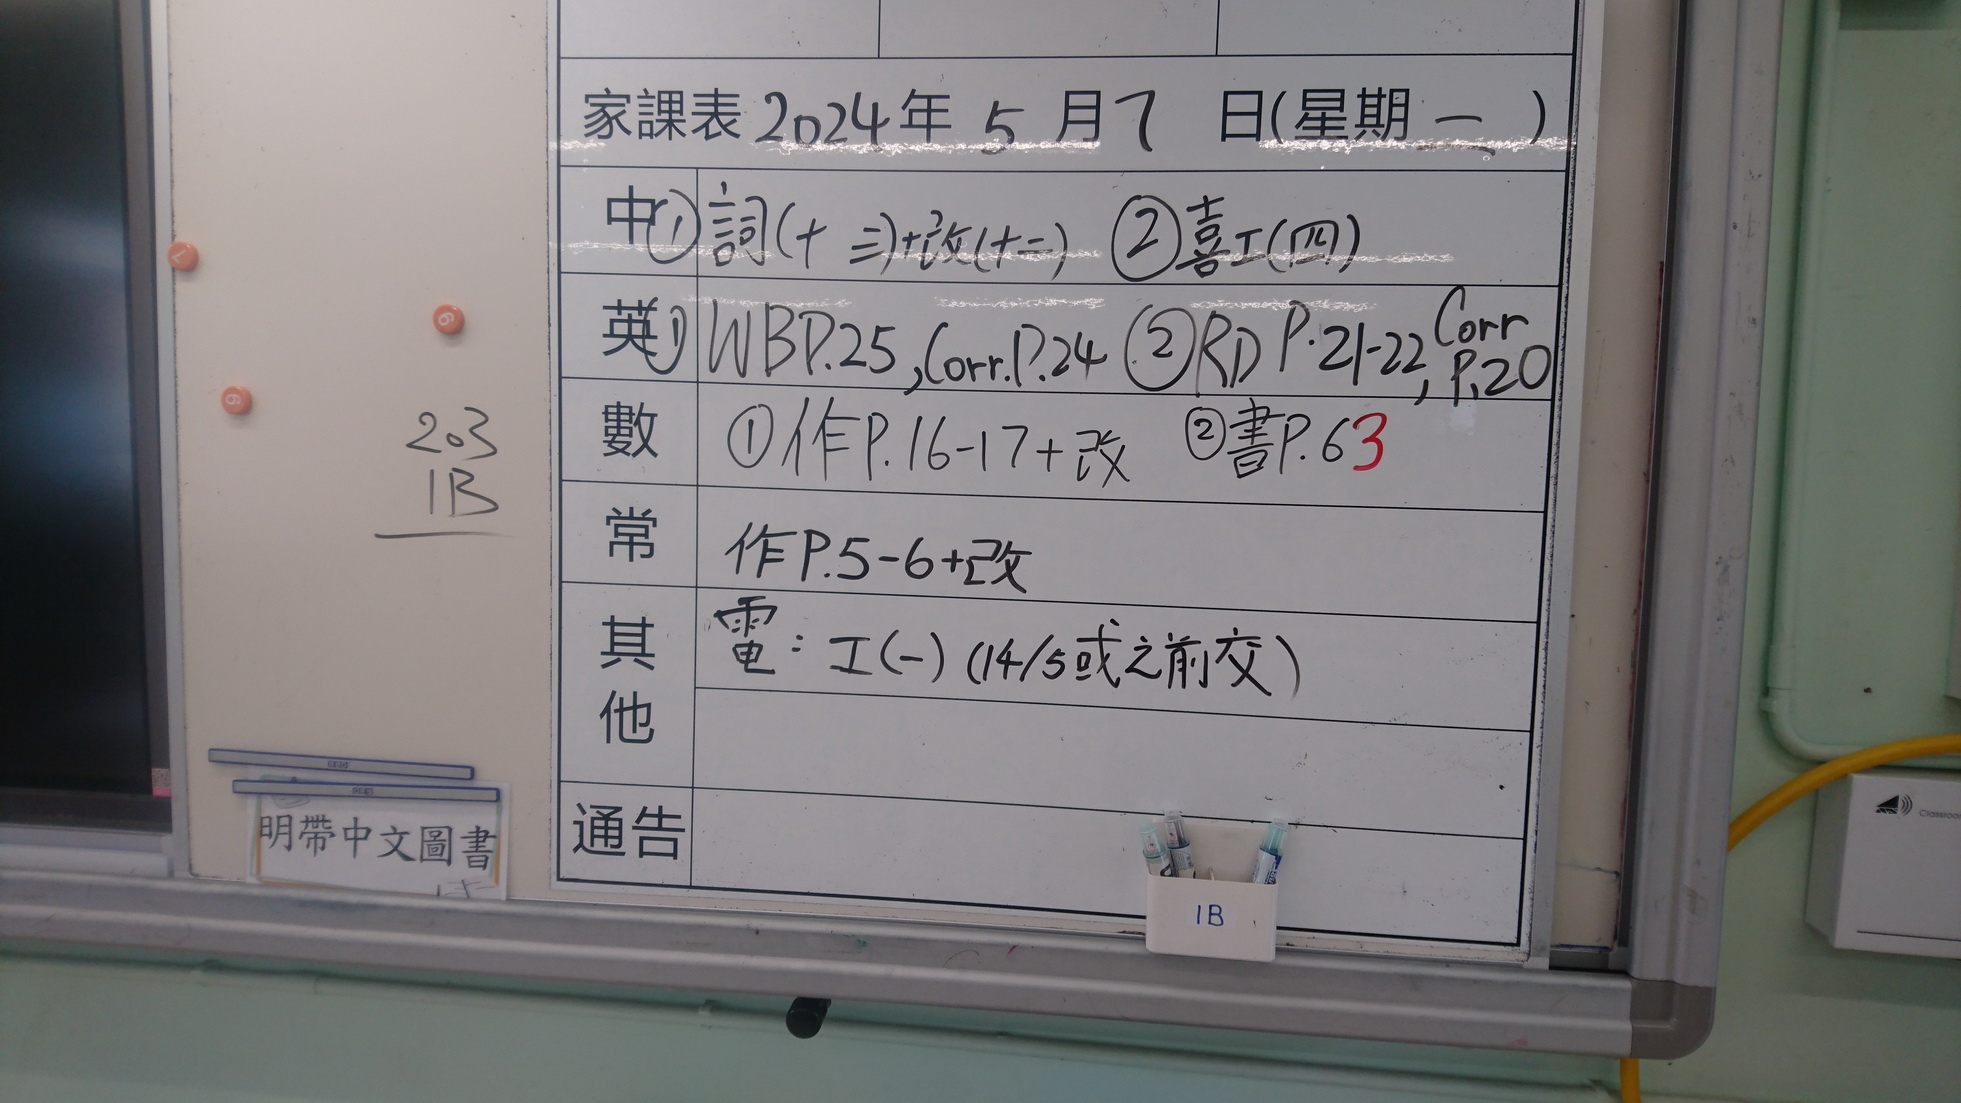 家課表 2024年 5 月 7 日(星期 一 )
中 ①詞(十三)+改(十二) ②喜工(四)
英 ①WBP.25, Corr.P.24 ②RD P.21-22, Corr P.20
數 ①作P.16-17+改 ②書P.63
常 作P.5-6+改
其他 電：工(一) (14/5或之前交)
通告
203
1B
明帶中文圖書
1B
Classroo